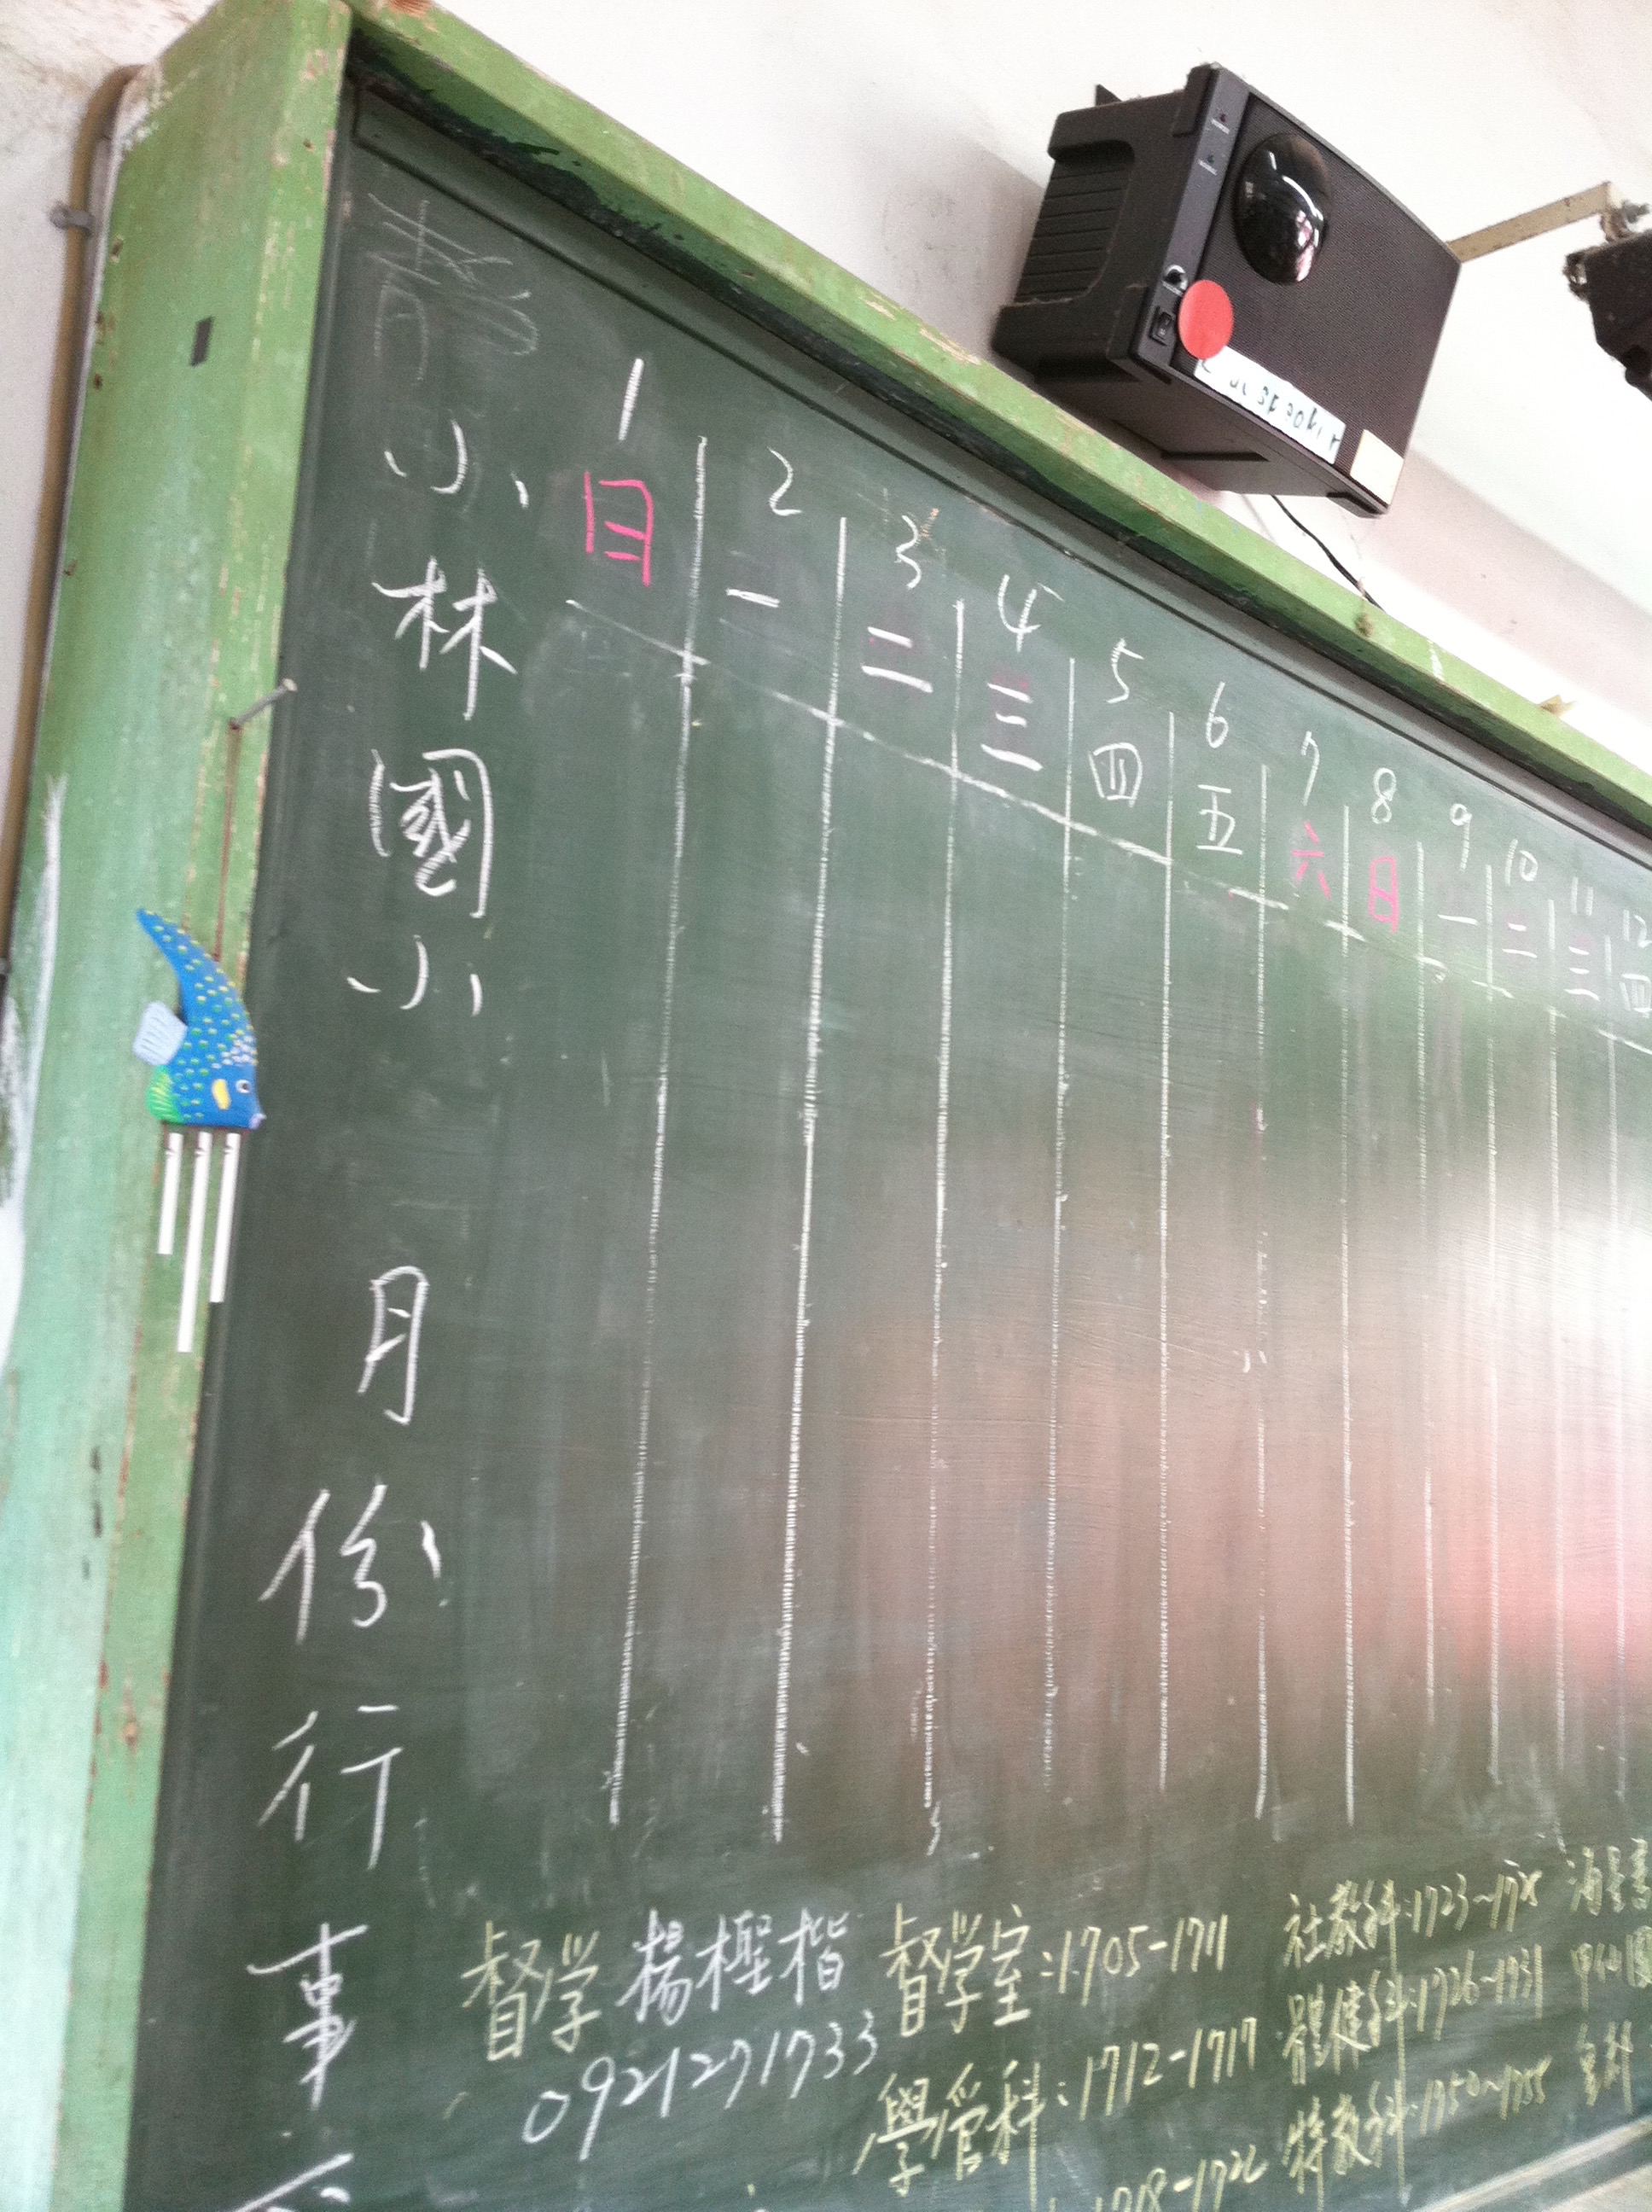 小林國小 月份行事
1 2 3 4 5 6 7 8 9 10 11 12
日 一 二 三 四 五 六 日 一 二 三 四
督学 楊樫楷
0921271733
督学室:1705-1711
學管科:1712-1717
社教科:1723~
體健科:1726~1731
特教科:1750~1755
speaker